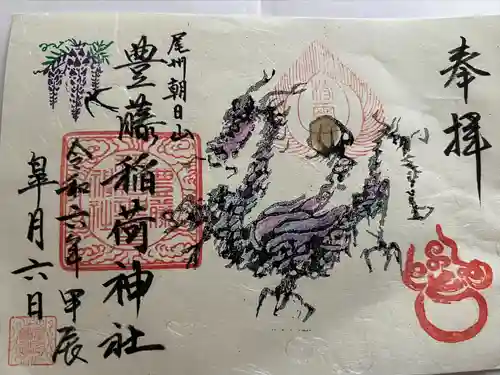 奉拝
尾州朝日山
豊藤稲荷神社
令和六年甲辰
皐月六日